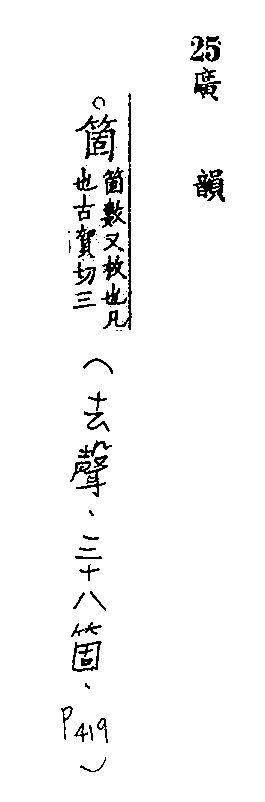 25廣韻
箇箇數又枚也凡
也古賀切三
(去聲、三十八箇、P419)